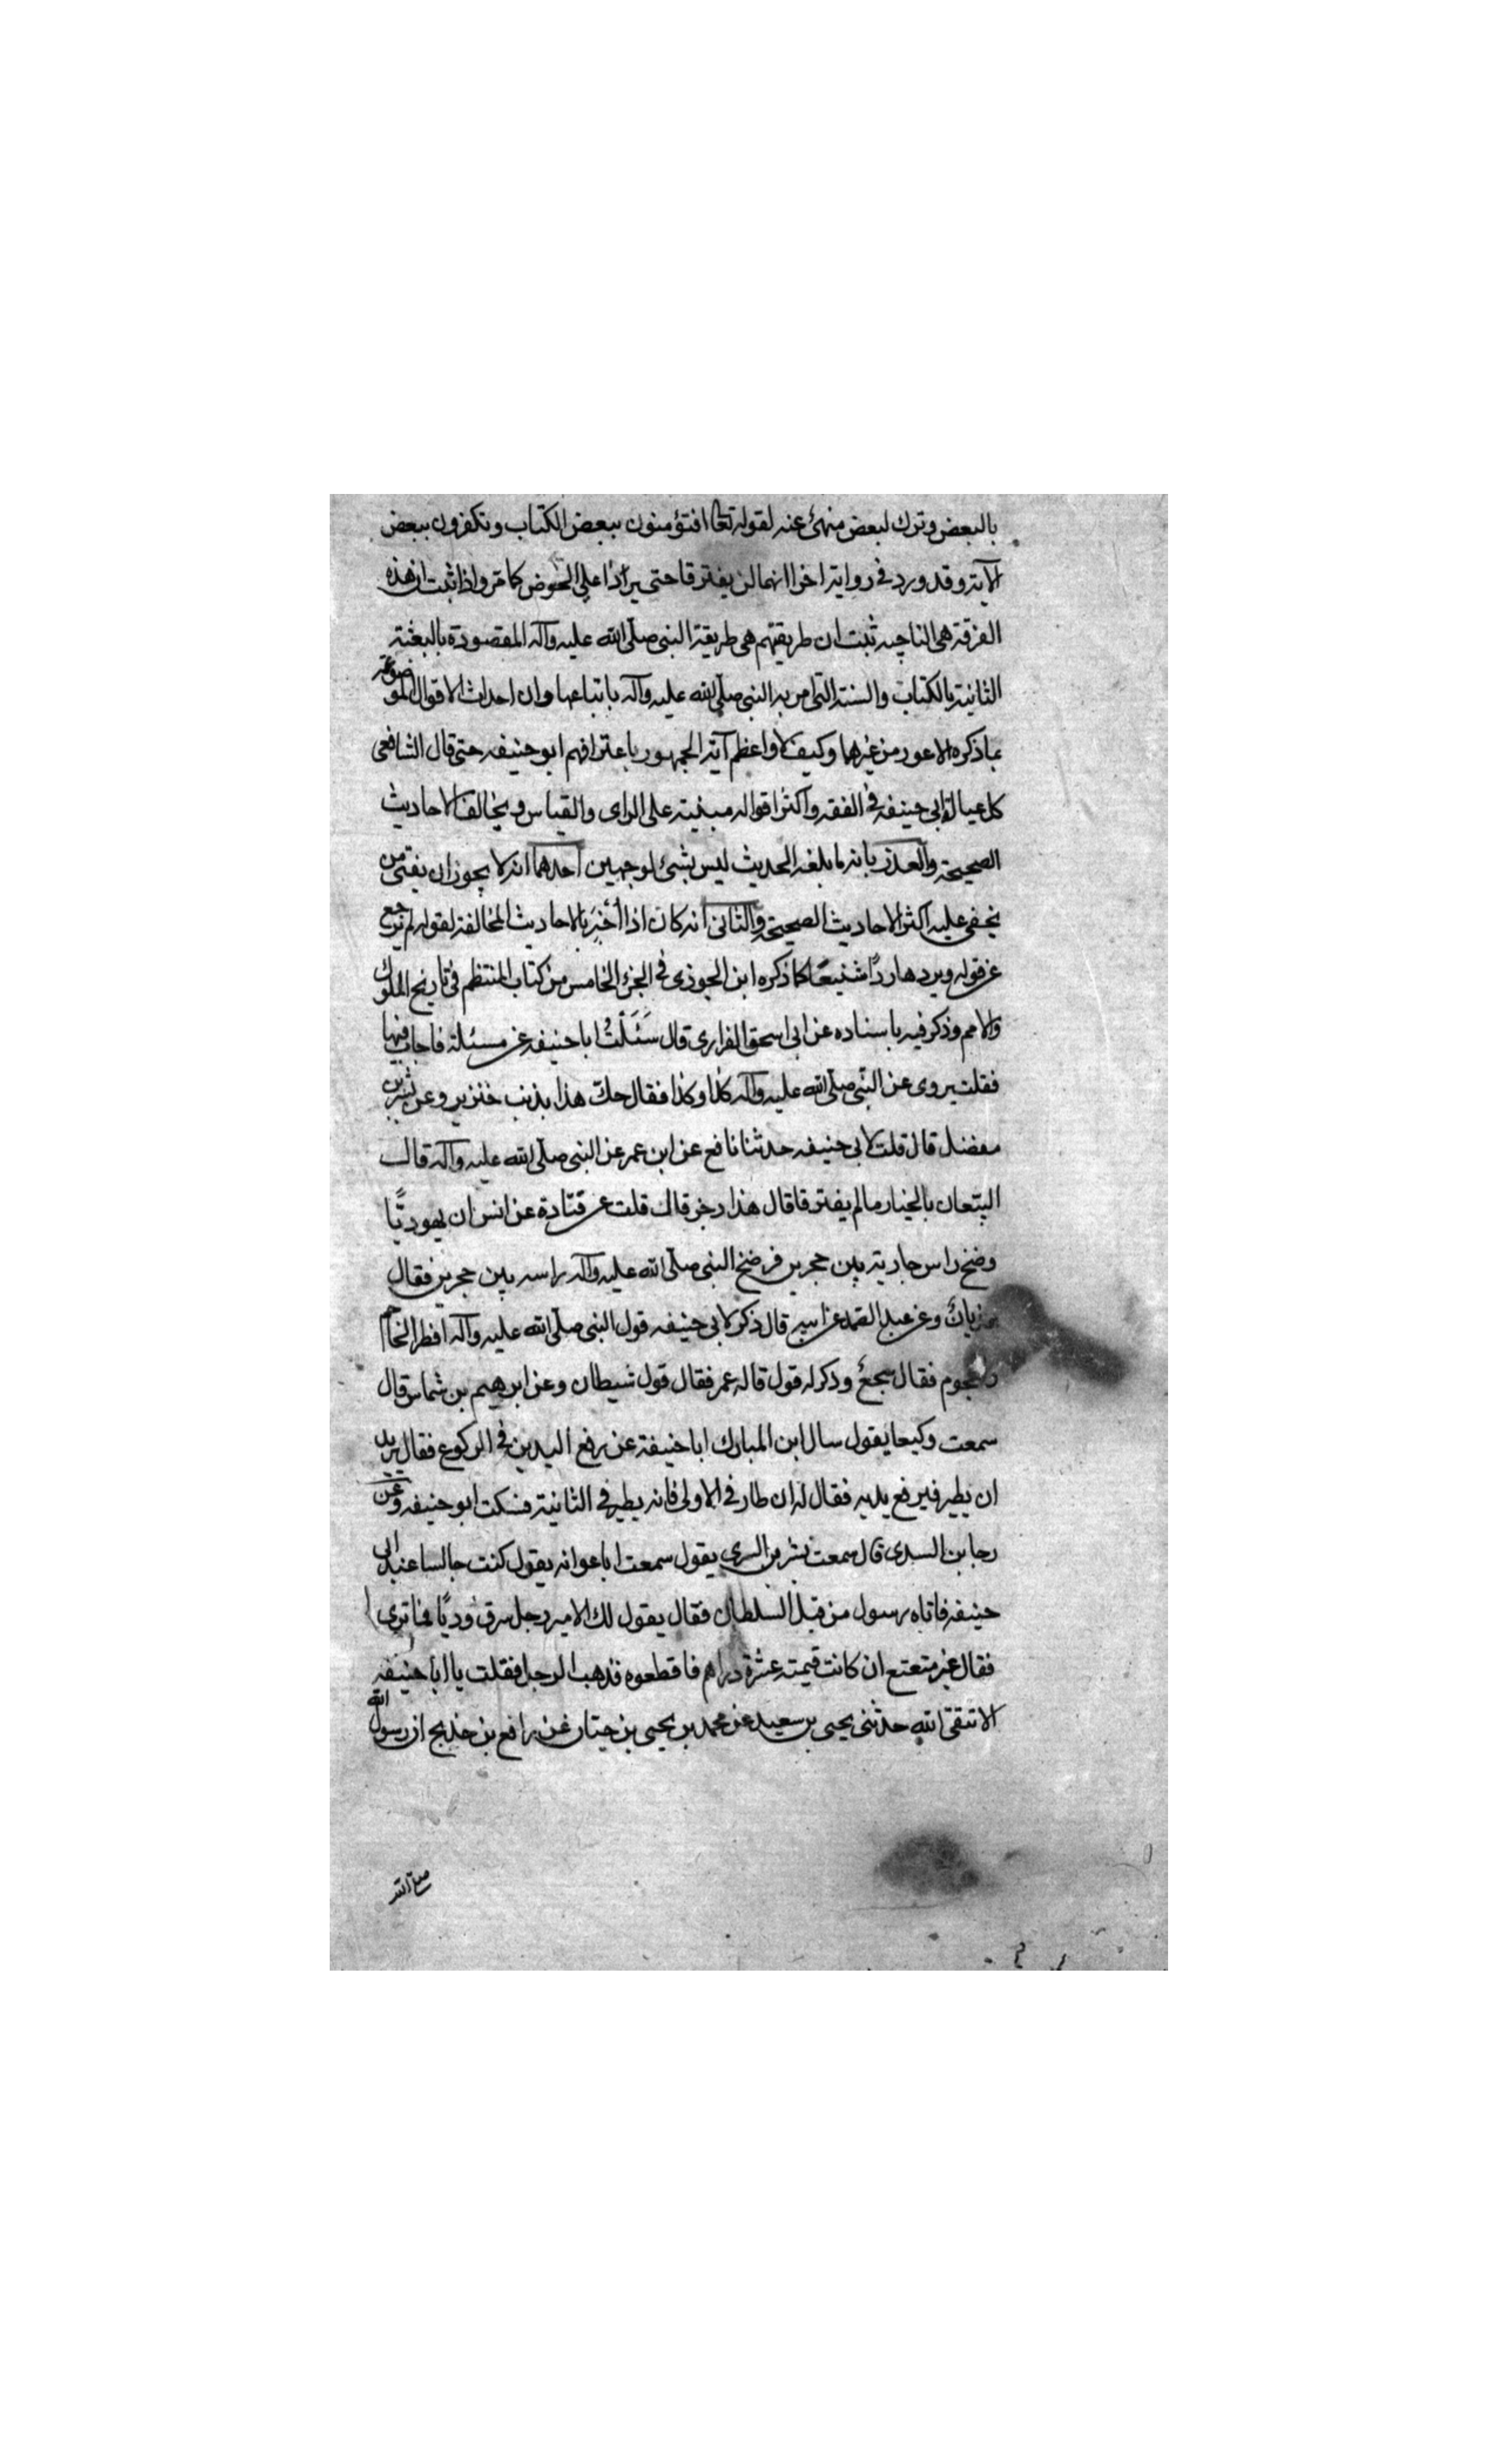 بالبعض وترك لبعض منهئ عنه لقوله تعالى افتؤمنون ببعض الكتاب وتكفرون ببعض
الآية وقد ورد في رواية اخرا انهما لن يفترقا حتى يردا على الحوض كما مر واذا ثبت ان هذه
الفرقة هي الناجيه ثبت ان طريقتهم هي طريقة النبى صلى الله عليه وآله المقصودة بالبعثة
الثانية بالكتاب والسنة التى امر به النبى صلى الله عليه وآله باتباعها وان احداث الاقوال الموضوعة
بما ذكره الاعور من غيرهما وكيف لا واعظم آية الجمهور باعترافهم ابو حنيفه حتى قال الشافعى
كل عيال لابى حنيفه في الفقه واكثر اقواله مبنية على الراى والقياس ويخالف الاحاديث
الصحيحة والعذر بانه ما بلغه الحديث ليس بشئ لوجهين احدهما انه لا يجوز ان يفتى من
يخفى عليه اكثر الاحاديث الصحيحة والثانى انه كان اذا أُخبِرَ بالاحاديث المخالفة لقوله لم يرجع
عن قوله ويردها ردًا شنيعًا كما ذكره ابن الجوزى في الجزء الخامس من كتاب المنتظم فى تاريخ الملوك
والامم وذكر فيه باسناده عن ابى اسحق الفزارى قال سَئَلْتُ ابا حنيفه عن مسئلة فاجاب فيها
فقلت يروى عن النبى صلى الله عليه وآله كذا وكذا فقال حك هذا بذنب خنزير وعن بشر بن
مفضل قال قلت لابى حنيفه حدثنا نافع عن ابن عمر عن النبى صلى الله عليه وآله قال
البيّعان بالخيار مالم يفترقا قال هذا رجز قال قلت عن قتادة عن انس ان يهوديًّا
رضخ راس جارية بين حجرين فرضخ النبى صلى الله عليه وآله راسه بين حجرين فقال
هذيان وعن عبد الصمد عن ابيه قال ذكر لابى حنيفه قول النبى صلى الله عليه وآله افطر الحاجم
والمحجوم فقال سجعٌ وذكر له قول قاله عمر فقال قول شيطان وعن ابرهيم بن شماس قال
سمعت وكيعا يقول سال ابن المبارك ابا حنيفة عن رفع اليدين في الركوع فقال يريد
ان يطير فيرفع يديه فقال له ان طار في الاولى فانه يطير في الثانية فسكت ابو حنيفه وعن
رجا بن السدى قال سمعت بشر بن السرى يقول سمعت ابا عوانه يقول كنت جالسا عند ابى
حنيفه فاتاه رسول من قبل السلطان فقال يقول لك الامير رجل سرق وديًا فما ترى
فقال غير متعتع ان كانت قيمته عشرة دراهم فاقطعوه فذهب الرجل فقلت يا ابا حنيفه
الا تتقى الله حدثنى يحيى بن سعيد عن محمد بن يحيى بن حبان عن رافع بن خديج ان رسول الله
صلى الله